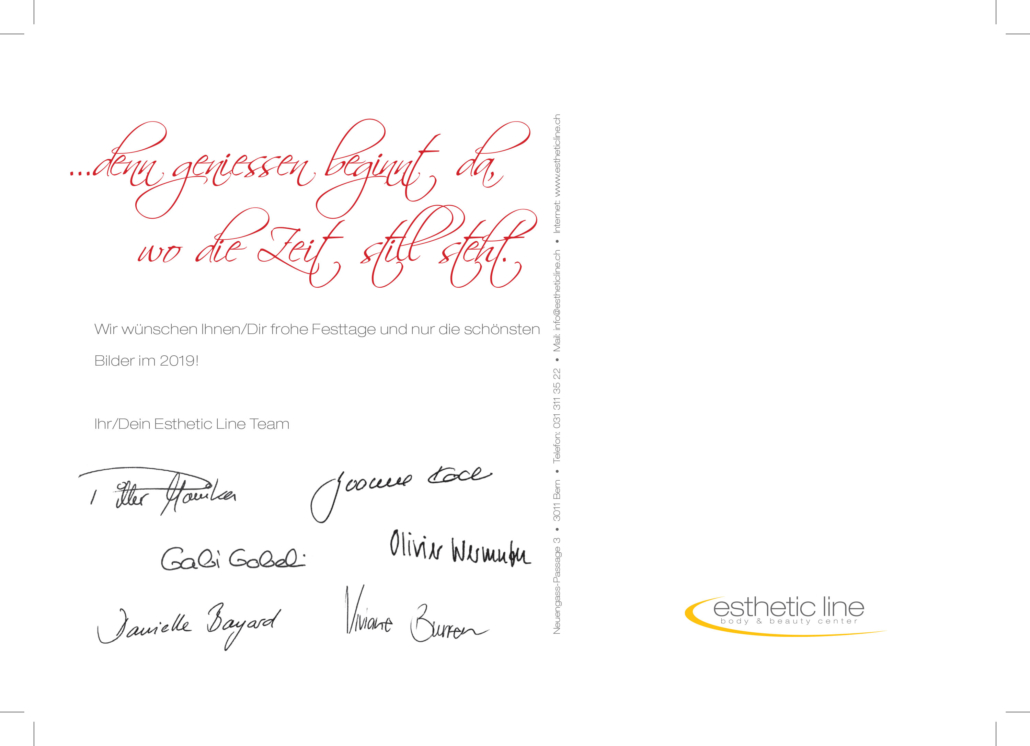 ...denn geniessen beginnt da,
wo die Zeit still steht.
Wir wünschen Ihnen/Dir frohe Festtage und nur die schönsten
Bilder im 2019!
Ihr/Dein Esthetic Line Team
Gabi Gobeli
Olivier
Danielle Bayard
Viviane Burren
Neuengass-Passage 3 • 3011 Bern • Telefon: 031 311 35 22 • Mail: info@estheticline.ch • Internet: www.estheticline.ch
esthetic line
body & beauty center